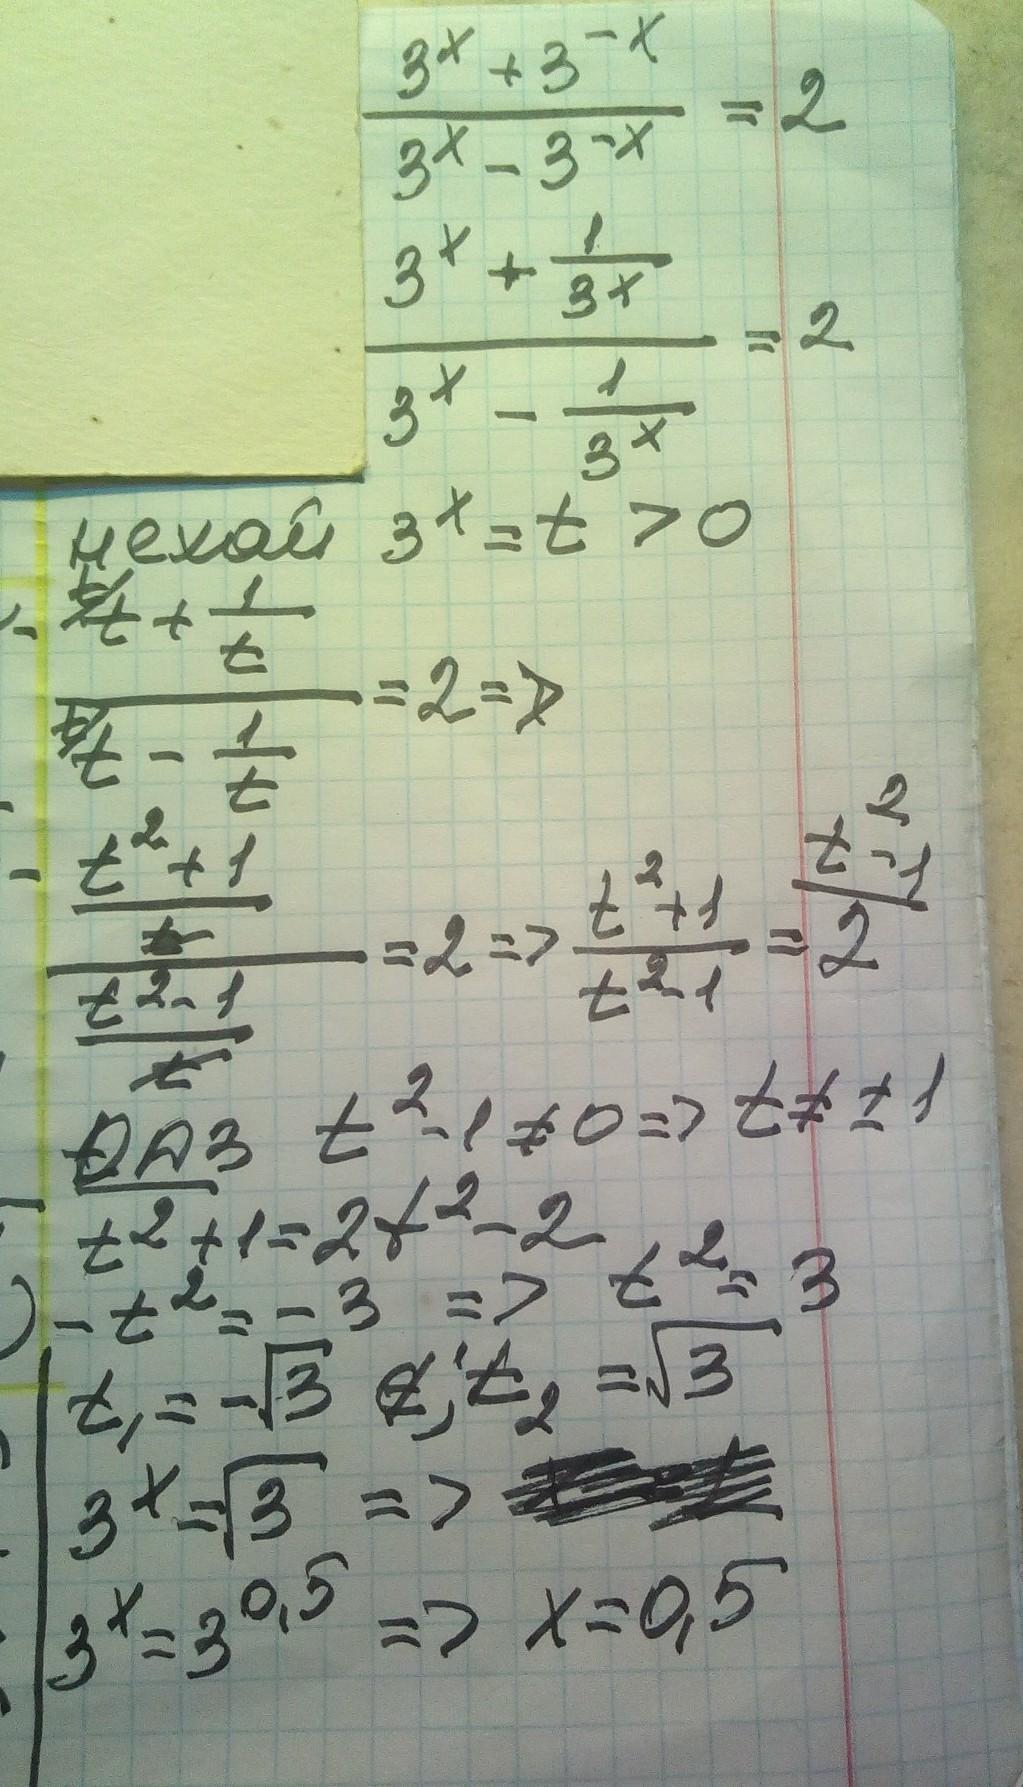 (3^x + 3^-x) / (3^x - 3^-x) = 2
(3^x + 1/3^x) / (3^x - 1/3^x) = 2
нехай 3^x = t > 0
(t + 1/t) / (t - 1/t) = 2 =>
((t^2 + 1)/t) / ((t^2 - 1)/t) = 2 => (t^2 + 1)/(t^2 - 1) = (t^2 - 1)/2
ОДЗ t^2 - 1 ≠ 0 => t ≠ ± 1
t^2 + 1 = 2t^2 - 2
- t^2 = - 3 => t^2 = 3
t1 = -√3 ; t2 = √3
3^x = √3 =>
3^x = 3^0,5 => x = 0,5